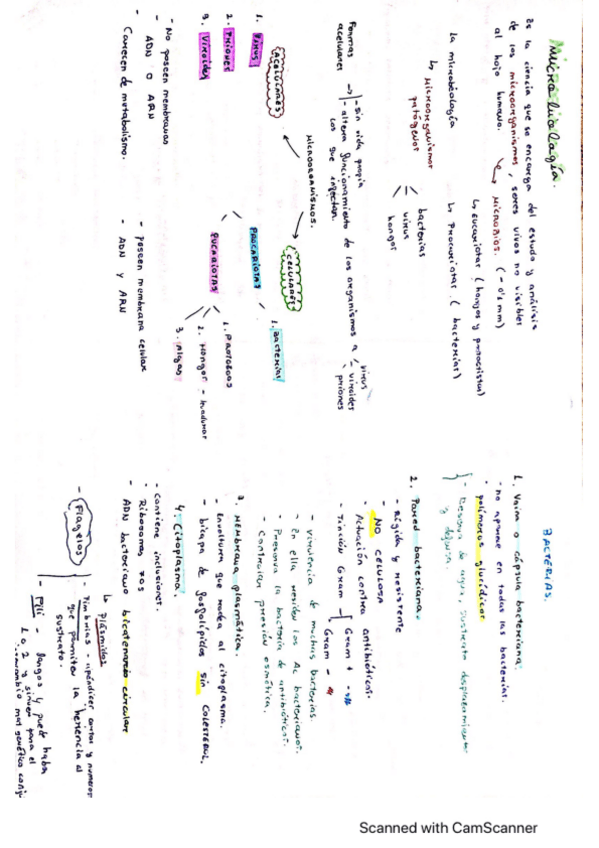 Microbiología.
Es la ciencia que se encarga del estudio y análisis
de los microorganismos, seres vivos no visibles
al ojo humano. → microbios. (- 0'1 mm)
↳ eucariotas (hongos y protoctistas)
↳ Procariotas. (bacterias)
La microbiología
↳ Microorganismos
patógenos
bacterias
virus
hongos
Formas
acelulares
- sin vida propia
- altera funcionamiento de los organismos a
los que infectan.
virus
- viroides
priones
MICROORGANISMOS.
ACELULARES
1. VIRUS
2. PRIONES
3. VIROIDES
- No poseen membranas
- ADN o ARN
- Carecen de metabolismo.
CELULARES
PROCARIOTAS
1. Bacterias
EUCARIOTAS
1. PROTOZOOS
2. Hongos
3. Algas
- poseen membrana celular
- ADN y ARN
BACTERIAS.
1. Vaina o cápsula bacteriana:
- no aparece en todas las bacterias.
- polímeros glucídicos
- Reserva de agua, sustrato desplazamiento
2. Pared bacteriana.
- Rígida y resistente
- NO CELULOSA
- Actuación contra antibióticos.
- Tinción Gram
Gram +
Gram -
- virulencia de muchas bacterias.
- En ella residen los Ac bacterianos.
- Presenta la bacteria de antibióticos.
- Controlan presión osmótica.
3. MEMBRANA plasmática.
- Envoltura que rodea al citoplasma.
- bicapa de fosfolípidos sin COLESTEROL.
4. Citoplasma.
- contiene inclusiones.
- Ribosomas 70s
- ADN bacteriano bicatenario circular
↳ Plásmidos
- Flagelos
- Fimbrias - apéndices cortos y numeros
que permiten la herencia al
sustrato.
- Pili - largos y puede haber
1 o 2 y sirven para el
intercambio mat genético conj.
Scanned with CamScanner